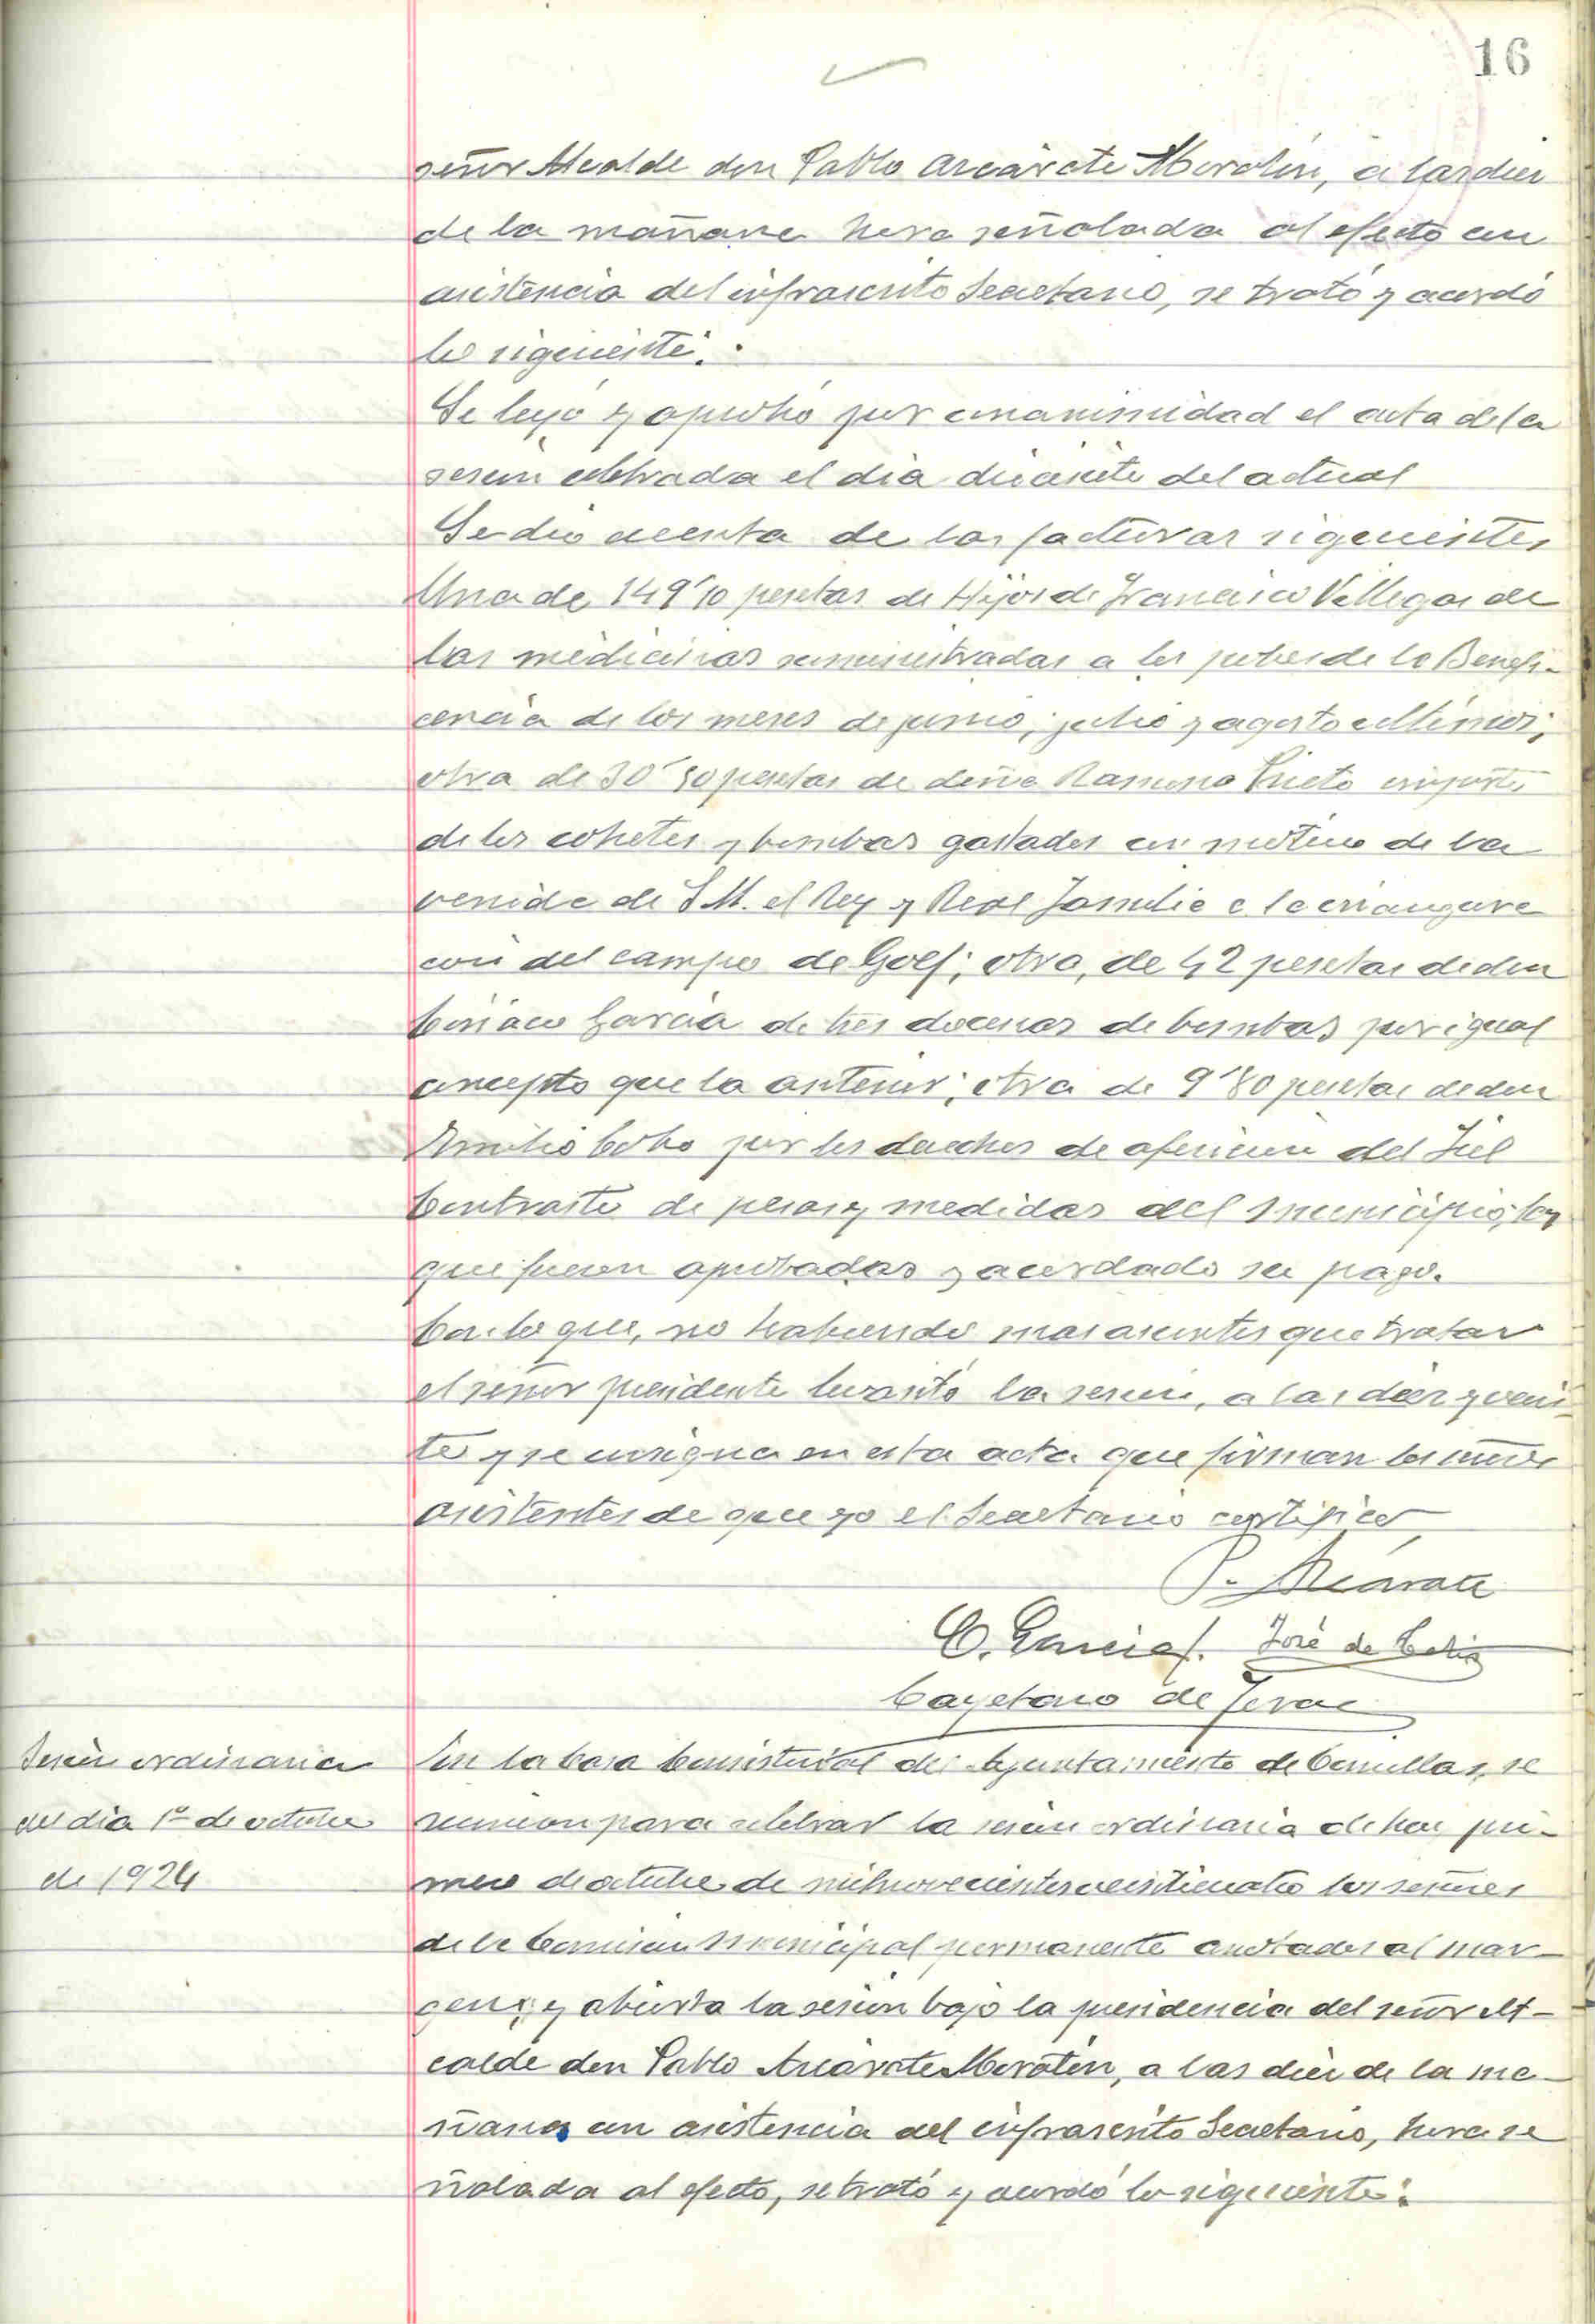 16
señor Alcalde don Pablo Azcárate Moratín, a las diez
de la mañana hora señalada al efecto con
asistencia del infrascrito Secretario, se trató y acordó
lo siguiente:
Se leyó y aprobó por unanimidad el acta de la
sesión celebrada el día diecisiete del actual
Se dió cuenta de las facturas siguientes
Una de 149'10 pesetas de Hijos de Francisco Villegas de
las medicinas suministradas a los pobres de la Benefi-
cencia de los meses de junio, julio y agosto últimos;
otra de 30'50 pesetas de doña Ramona Prieto importe
de los cohetes y bombas gastados con motivo de la
venida de S.M. el Rey y Real Familia a la inaugura
ción del campo de Golf; otra, de 42 pesetas de don
Ciriaco García de tres docenas de bombas por igual
concepto que la anterior; otra de 9'80 pesetas de don
Emilio Cobo por los derechos de aferición del Fiel
Contraste de pesas y medidas del municipio, las
que fueron aprobadas y acordado su pago.
Con lo que, no habiendo mas asuntos que tratar
el señor presidente levantó la sesión, a las diez y vein-
te y se consigna en esta acta que firman los señores
asistentes de que yo el Secretario certifico
P. Azcárate
C. García José de Celis
Cayetano de
Sesión ordinaria
del día 1º de octubre
de 1924
En la Casa Consistorial del Ayuntamiento de Comillas, se
reunieron para celebrar la sesión ordinaria de hoy pri-
mero de octubre de mil novecientos veinticuatro los señores
de la Comisión municipal permanente anotados al mar-
gen; y abierta la sesión bajo la presidencia del señor Al-
calde don Pablo Azcárate Moratín, a las diez de la ma-
ñana con asistencia del infrascrito Secretario, hora se
ñalada al efecto, se trató y acordó lo siguiente: